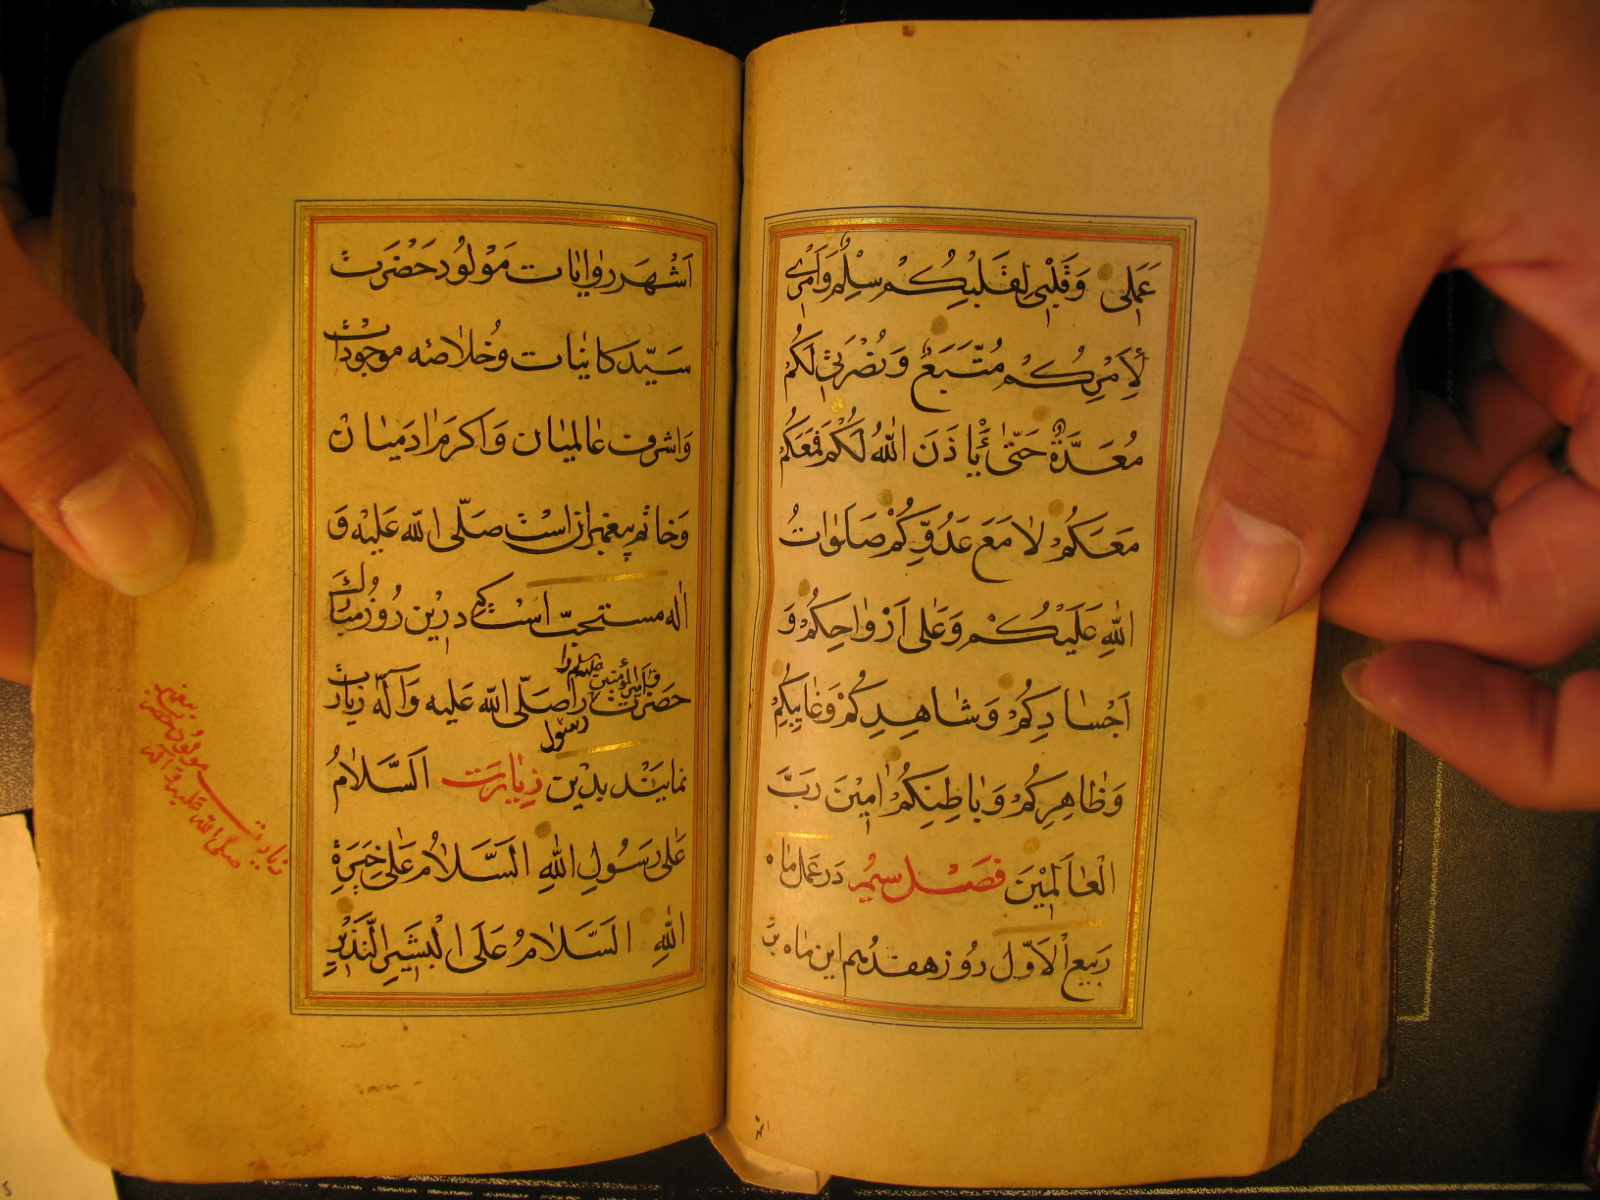 عَمَلی وَقَلْبی لِقَلْبِکُمْ سِلْمٌ وَاَمْری
لِاَمْرِکُمْ مُتَّبَعٌ وَنُصْرَتی لَکُمْ
مُعَدَّةٌ حَتّیٰ یَأْذَنَ اللهُ لَکُمْ فَمَعَکُمْ
مَعَکُمْ لاٰ مَعَ عَدُوِّکُمْ صَلَوٰاتُ
اللهِ عَلَیْکُمْ وَعَلیٰ اَرْوٰاحِکُمْ وَ
اَجْسٰادِکُمْ وَشٰاهِدِکُمْ وَغٰایِبِکُمْ
وَظٰاهِرِکُمْ وَبٰاطِنِکُمْ اٰمینَ رَبَّ
الْعٰالَمینَ فصْل سیُم دَر عَمل مٰاه
رَبیع الْاَوّل رُوز هفدهم این مٰاه بَر
اَشْهَر رِوٰایٰات مَوْلُود حَضْرَت
سَیّد کاینٰات وَخُلاٰصَه موجودٰات
وَاشرف عٰالمیٰان وَاَکرَم اٰدَمیٰان
وَخاتم پیغمبران اسْت صَلّی الله عَلَیْه وَ
اٰله مستحبّ اسْت که دراین رُوز مبٰارک
حَضرَت رسُول صَلّی الله عَلَیه وَآله
وامیر المؤمنین
را زیٰارت
نمایَنْد بدین زیٰارَت اَلسَّلاٰمُ
عَلیٰ رَسُولِ اللهِ اَلسَّلاٰمُ عَلیٰ خِیَرَةِ
اللهِ اَلسَّلاٰمُ عَلَی الْبَشیرِ النَّذیرِ
زیارت
مولود حضرت پیغمبر
صلی الله علیه واله